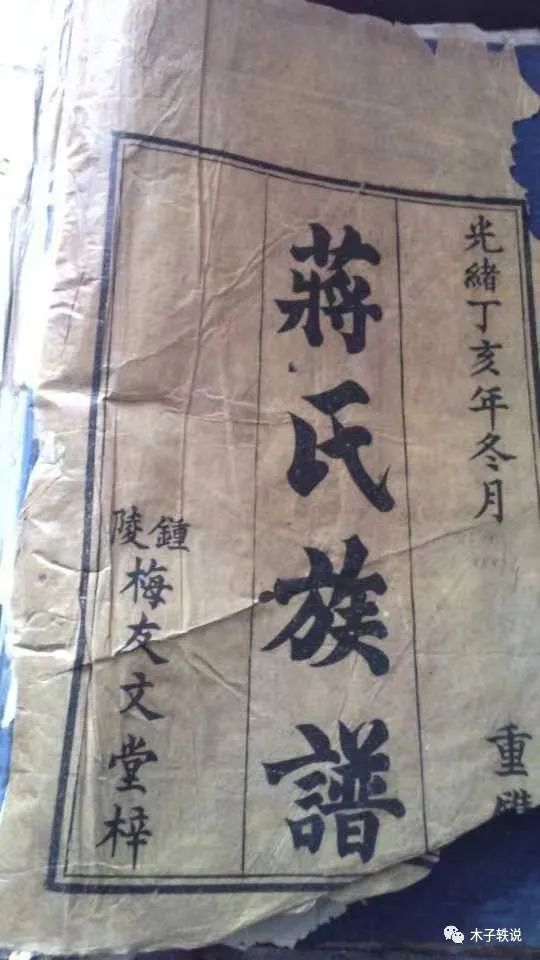 光緒丁亥年冬月
重
蔣氏族譜
鍾陵梅友文堂梓
木子轶说